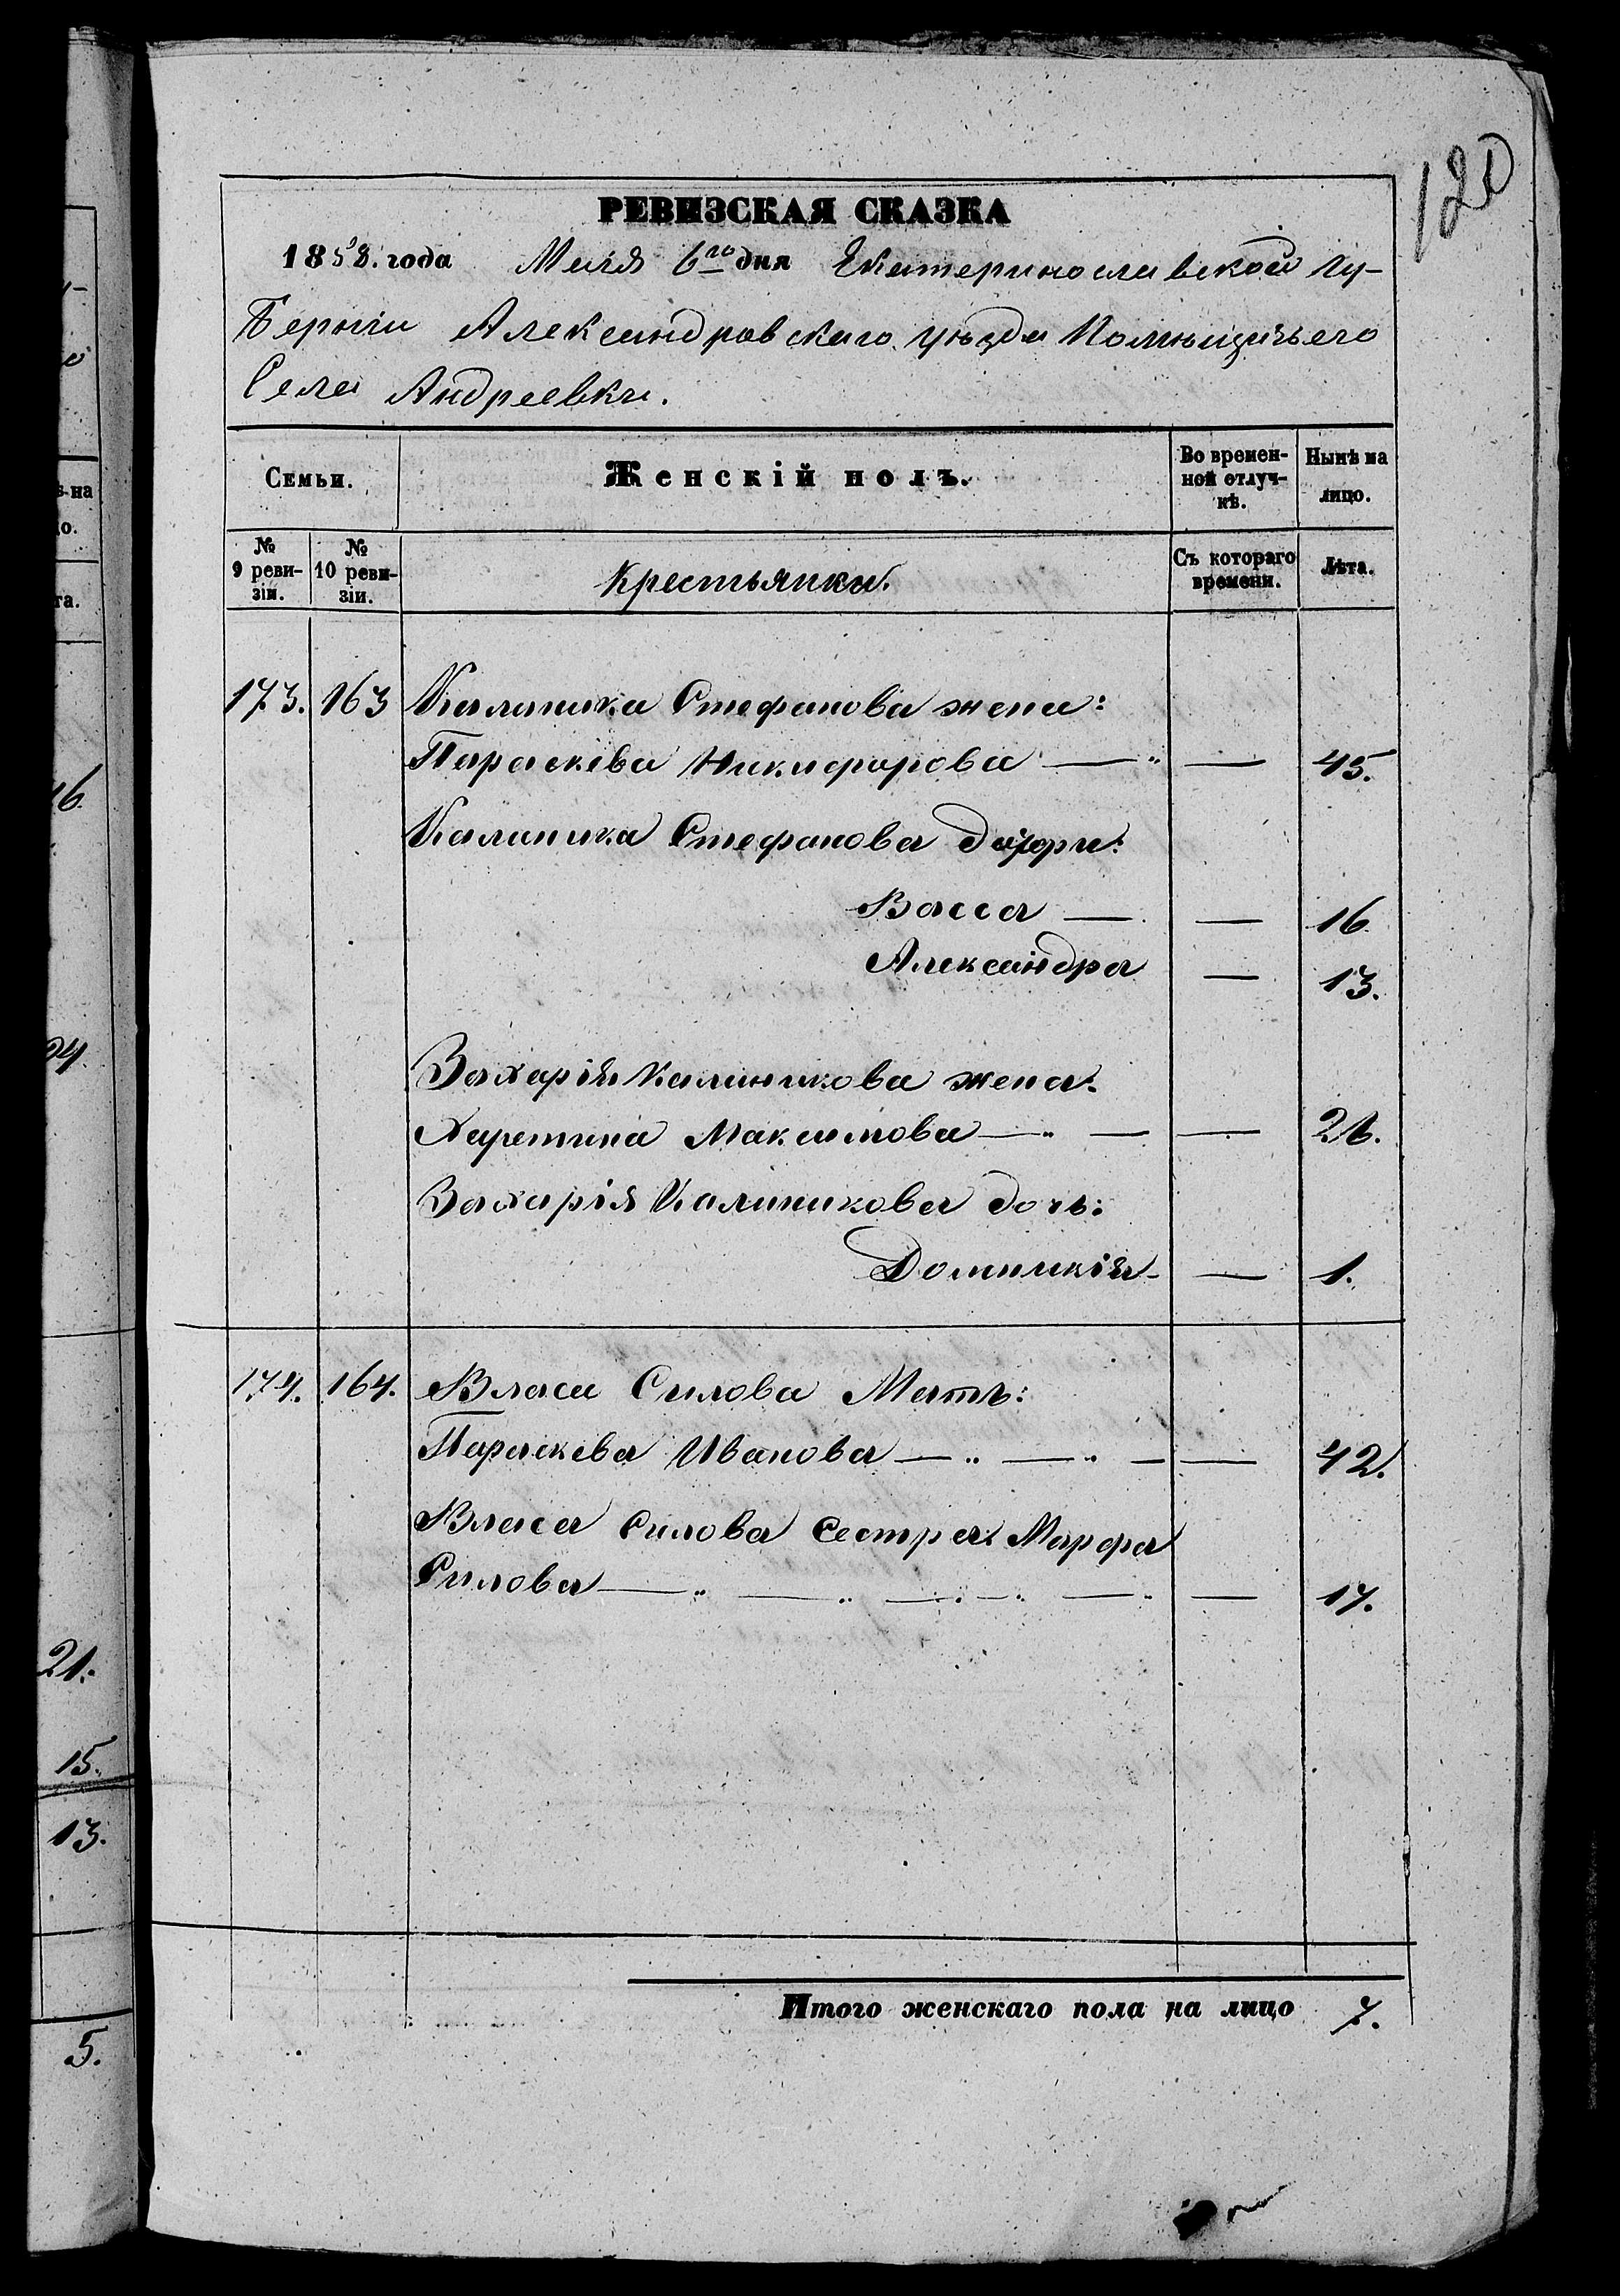 120
РЕВИЗСКАЯ СКАЗКА
1858. года Маія 6го дня Екатеринославской гу-
берніи Александровскаго уѣзда Помѣщичьего
Села Андреевки.
Семьи. Женскій полъ. Во времен-
ной отлуч-
кѣ. Нынѣ на
лицо.
№
9 реви-
зіи. №
10 реви-
зіи. Крестьянки. Съ котораго
времени. Лѣта.
173. 163 Калиника Стефанова жена:
Параскева Никифорова — — 45.
Калиника Стефанова дочери:
Васса — — 16
Александра — 13.
Захарія Калиникова жена.
Харетина Максимова — — — 21.
Захарія Калиникова дочь:
Домникія — 1.
174. 164. Власа Силова Мать:
Параскева Иванова — — — — 42.
Власа Силова сестра: Марфа
Силова — — — — — — 17.
Итого женскаго пола на лицо 7.
16
24.
21.
15.
13.
5.